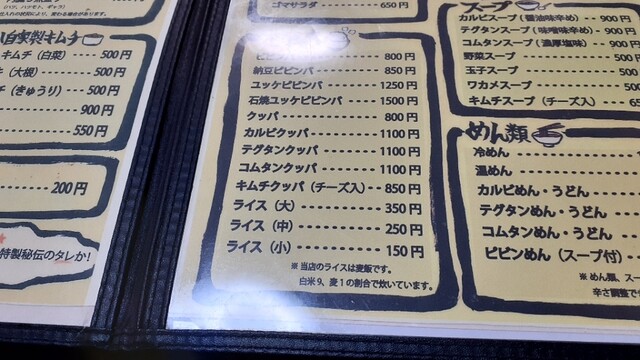 仕入れの状況により、変わる場合があります。
(ハツ、ハツモト、ギャラ)
自家製キムチ
キムチ（白菜） 500円
（大根） 500円
チ（きゅうり） 500円
900円
550円
200円
特製秘伝のタレか!
ゴマサラダ 650円
ビビンバ 800円
納豆ビビンバ 850円
ユッケビビンバ 1250円
石焼ユッケビビンバ 1500円
クッパ 800円
カルビクッパ 1100円
テグタンクッパ 1100円
コムタンクッパ 1100円
キムチクッパ（チーズ入） 850円
ライス（大） 350円
ライス（中） 250円
ライス（小） 150円
※ 当店のライスは麦飯です。
白米9、麦1の割合で炊いています。
スープ
カルビスープ（醤油味辛め） 900円
テグタンスープ（味噌味辛め） 900円
コムタンスープ（濃厚塩味） 900円
野菜スープ 500円
玉子スープ 500円
ワカメスープ 500円
キムチスープ（チーズ入）
めん類
冷めん
温めん
カルビめん・うどん
テグタンめん・うどん
コムタンめん・うどん
ビビンめん（スープ付）
※ めん類、スー
辛さ調整で